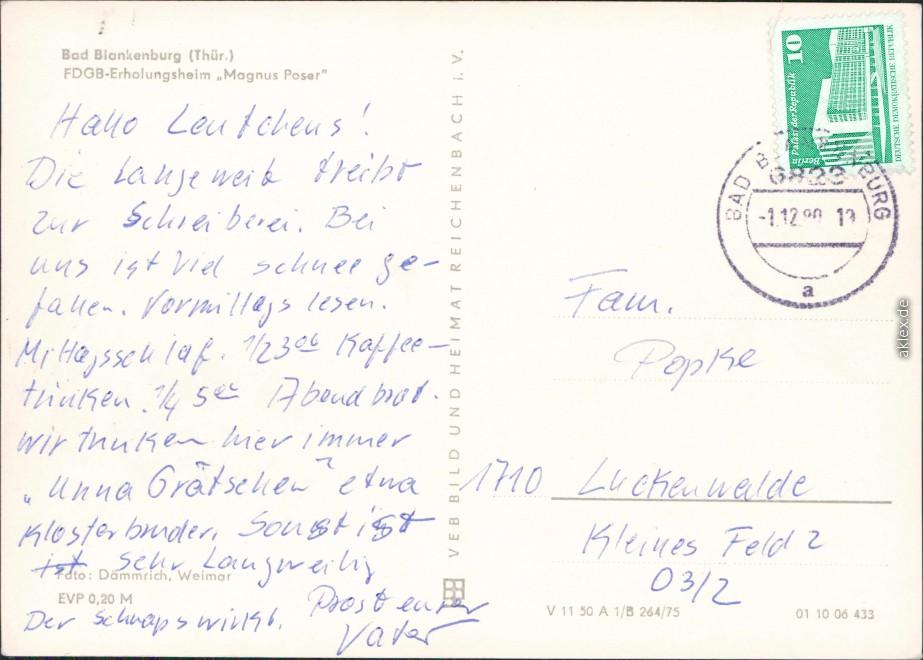 Bad Blankenburg (Thür.)
FDGB-Erholungsheim „Magnus Poser"
Hallo Leutchens!
Die Langeweile treibt
zur Schreiberei. Bei
uns ist viel schnee ge-
fallen. Vormittags lesen.
Mittagsschlaf. 1/2 3 00 Kaffee-
trinken. 1/4 5 00 Abendbrot.
wir trinken hier immer
„Unna Grätschen" etwa
Klosterbruder. Sonst ist
ist sehr Langweilig
Foto: Dämmrich, Weimar
EVP 0,20 M
Der Schnaps wirkt. Prost euer
Vater
VEB BILD UND HEIMAT REICHENBACH i. V.
10
Berlin Palast der Republik
DEUTSCHE DEMOKRATISCHE REPUBLIK
BAD BLANKENBURG
6823
-1.12.80 19
a
Fam.
Popke
1710 Luckenwalde
Kleines Feld 2
03/2
V 11 50 A 1/B 264/75
01 10 06 433
aklex.de